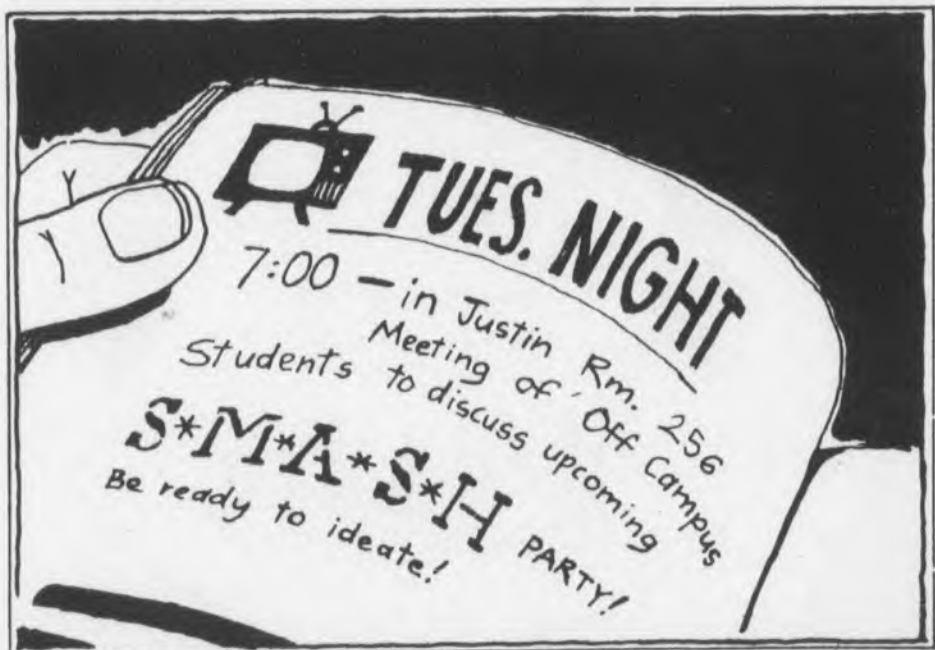 TUES. NIGHT
7:00 — in Justin Rm. 256
Meeting of Off Campus
Students to discuss upcoming
S*M*A*S*H PARTY!
Be ready to ideate!